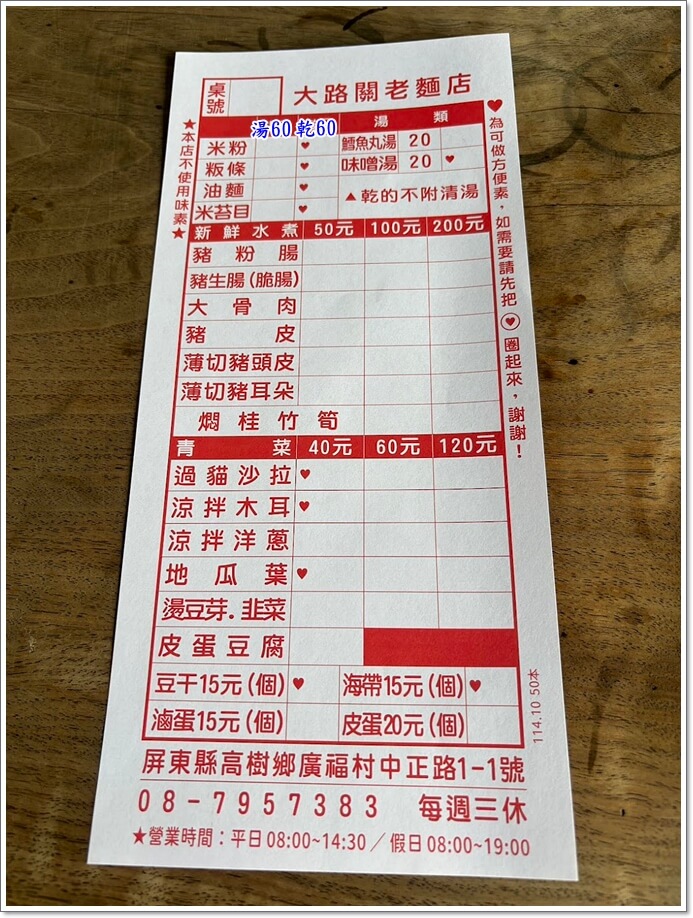 桌號
大路關老麵店
湯60 乾60
湯類
米粉 ♥ 鱈魚丸湯 20
粄條 ♥ 味噌湯 20 ♥
油麵 ♥ ▲乾的不附清湯
米苔目 ♥
新鮮水煮 50元 100元 200元
豬粉腸
豬生腸(脆腸)
大骨肉
豬皮
薄切豬頭皮
薄切豬耳朵
燜桂竹筍
青菜 40元 60元 120元
過貓沙拉 ♥
涼拌木耳 ♥
涼拌洋蔥
地瓜葉 ♥
燙豆芽.韭菜
皮蛋豆腐
豆干15元(個) ♥ 海帶15元(個) ♥
滷蛋15元(個) 皮蛋20元(個)
屏東縣高樹鄉廣福村中正路1-1號
08-7957383 每週三休
★營業時間：平日08:00~14:30／假日08:00~19:00
★本店不使用味素★
♥為可做方便素，如需要請先把♥圈起來，謝謝！
114.10 50本